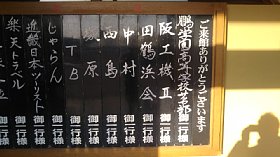 ご来館ありがとうございます
鵬学園高等学校芸部 御一行様
阪工機Ⅱ 御一行様
田鶴浜会 御一行様
中村 御一行様
西島 御一行様
原 御一行様
JTB 御一行様
じゃらん 御一行様
近畿日本ツーリスト 御一行様
楽天トラベル 御一行様